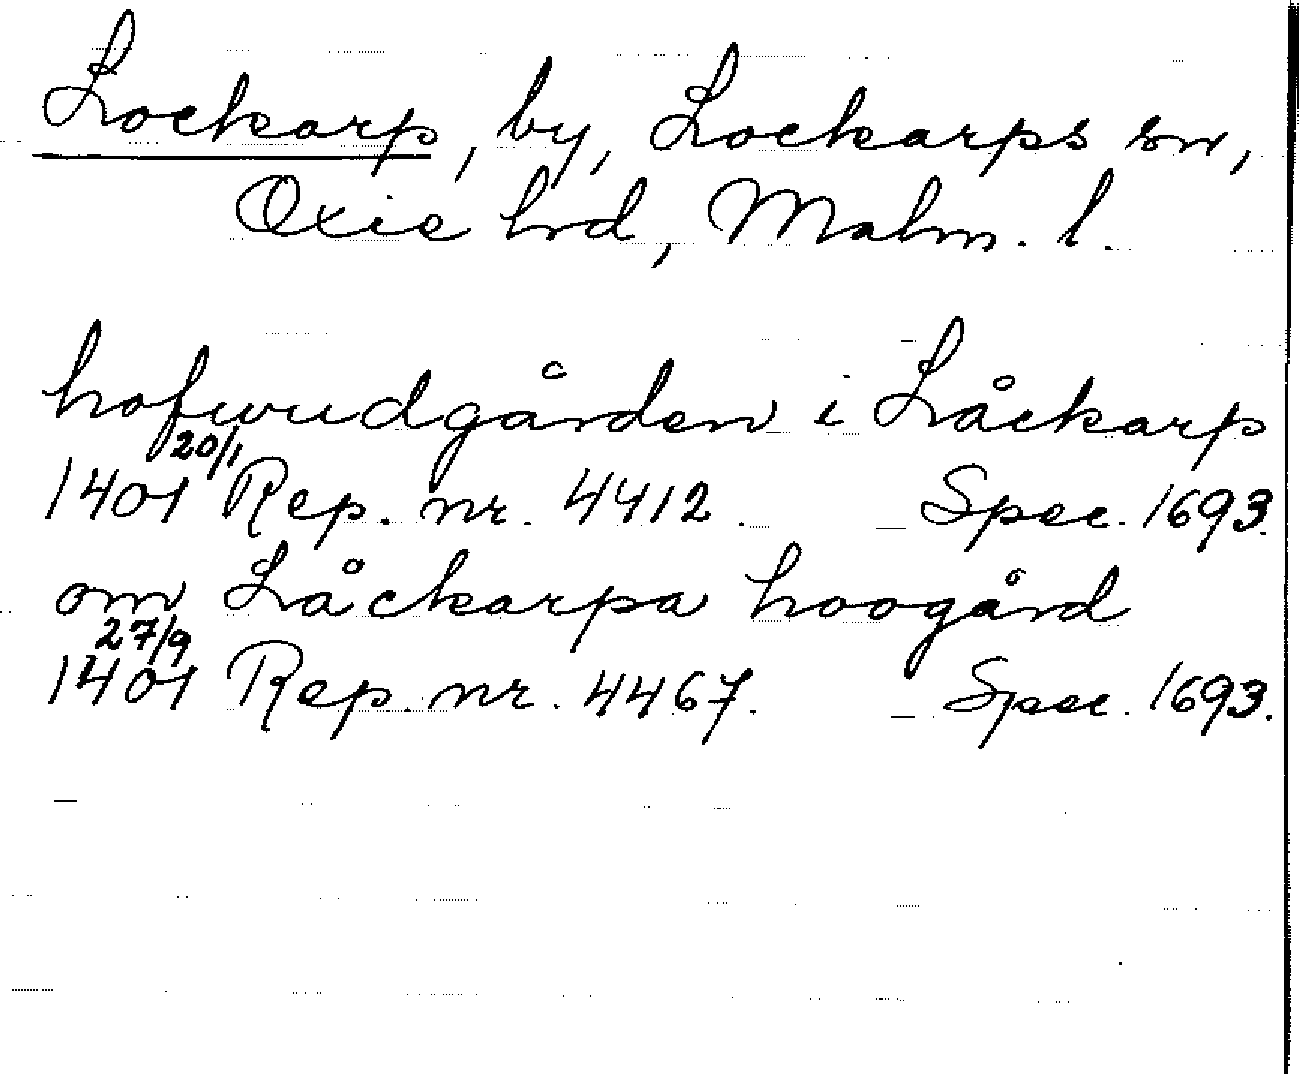 Lockarp, by, Lockarps sn,
Oxie hd, Malm. l.
hofwudgården i Låckarp
1401 20/1 Rep. nr. 4412. Spec. 1693.
om Låckarpa hoogård
1401 27/9 Rep. nr. 4467. Spec. 1693.